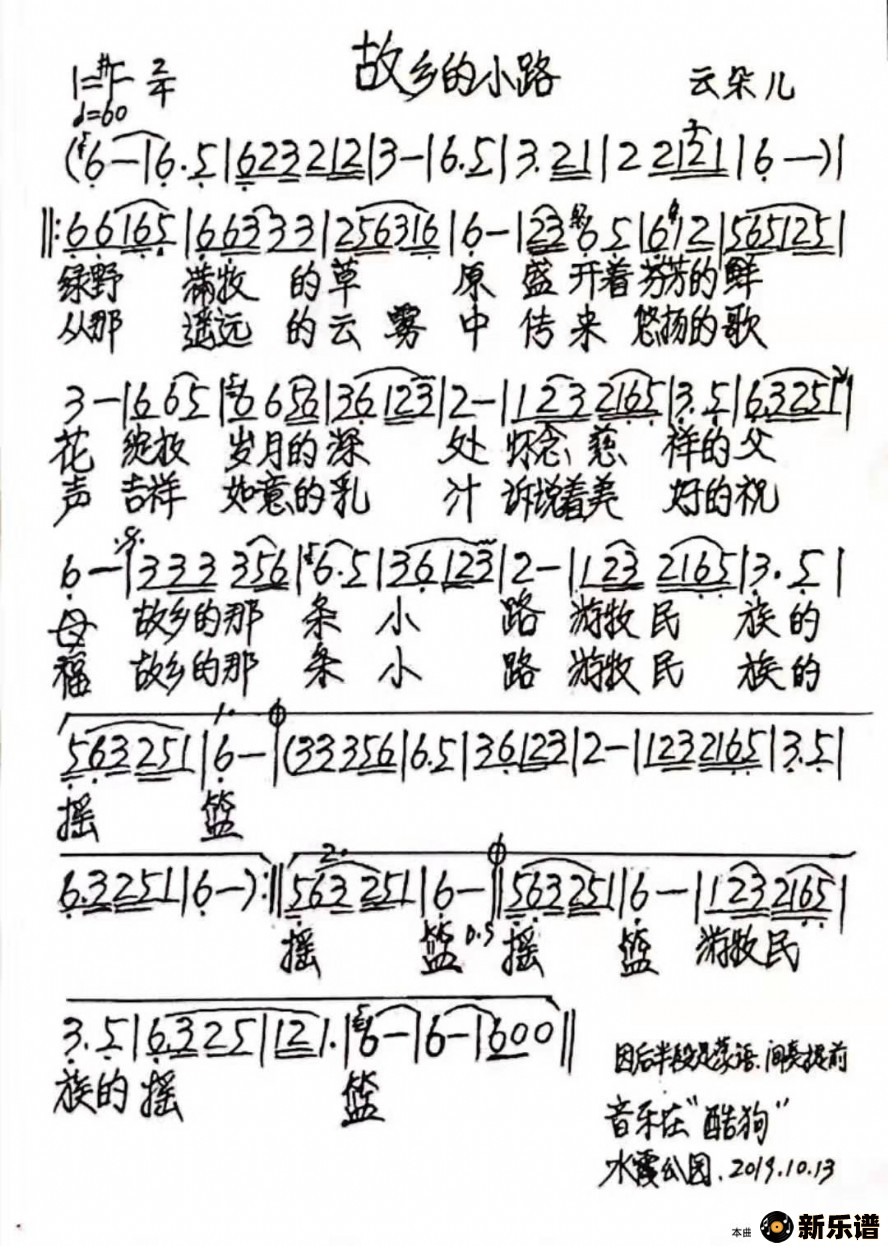 故乡的小路
1=#F 2/4
♩=60
云朵儿
(6—|6.5|623212|3—|6.5|3.21|22121|6—)|
‖:66165|66333|256316|6—|2365|6112|565125|
绿野 满牧 的草 原 盛开着芬芳的鲜
从那 遥远 的云雾中 传来 悠扬的歌
3—|665|6656|36123|2—|1232165|3.5|63251|
花 绽放 岁月的深 处 怀念慈 祥的父
声 吉祥 如意的乳 汁 诉说着美 好的祝
6—|333356|6.5|36123|2—|1232165|3.5|
母 故乡的那 条 小 路 游牧民 族的
福 故乡的那 条 小 路 游牧民 族的
1.
563251|6—|(33356|6.5|36123|2—|1232165|3.5|
摇 篮
63251|6—):‖563251|6—‖563251‖6—|1232165|
2.
摇 篮 D.S 摇 篮 游牧民
3.5|6325|121.|6—|6—|600‖
族的摇 篮
因后半段是蒙语.间奏提前
音乐在"酷狗"
水霞公园.2019.10.13
本曲 新乐谱